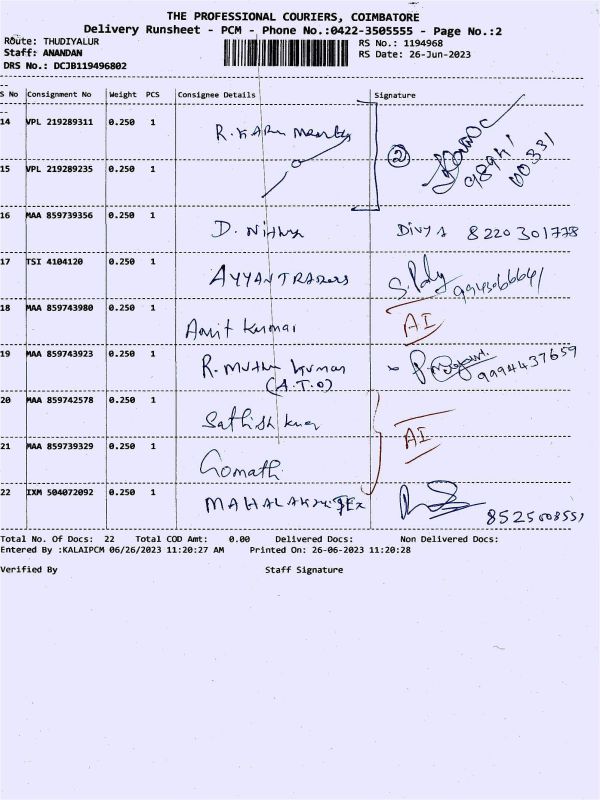 THE PROFESSIONAL COURIERS, COIMBATORE
Delivery Runsheet - PCM - Phone No.:0422-3505555 - Page No.:2
Route: THUDIYALUR
RS No.: 1194968
Staff: ANANDAN
RS Date: 26-Jun-2023
DRS No.: DCJB119496802
S No Consignment No Weight PCS Consignee Details Signature
14 VPL 219289311 0.250 1 R.
2
98941 00331
15 VPL 219289235 0.250 1
16 MAA 859739356 0.250 1 D. Nithya Divya 8220301778
17 TSI 4104120 0.250 1 AYYAN TRADERS
18 MAA 859743980 0.250 1 Amit Kumar AI
19 MAA 859743923 0.250 1 R. Muthu Kumar 9994437659
(A.T.O)
20 MAA 859742578 0.250 1 Sathish
AI
21 MAA 859739329 0.250 1 Gomath
22 IXM 504072092 0.250 1
Total No. Of Docs: 22 Total COD Amt: 0.00 Delivered Docs: Non Delivered Docs:
Entered By :KALAIPCM 06/26/2023 11:20:27 AM Printed On: 26-06-2023 11:20:28
Verified By Staff Signature